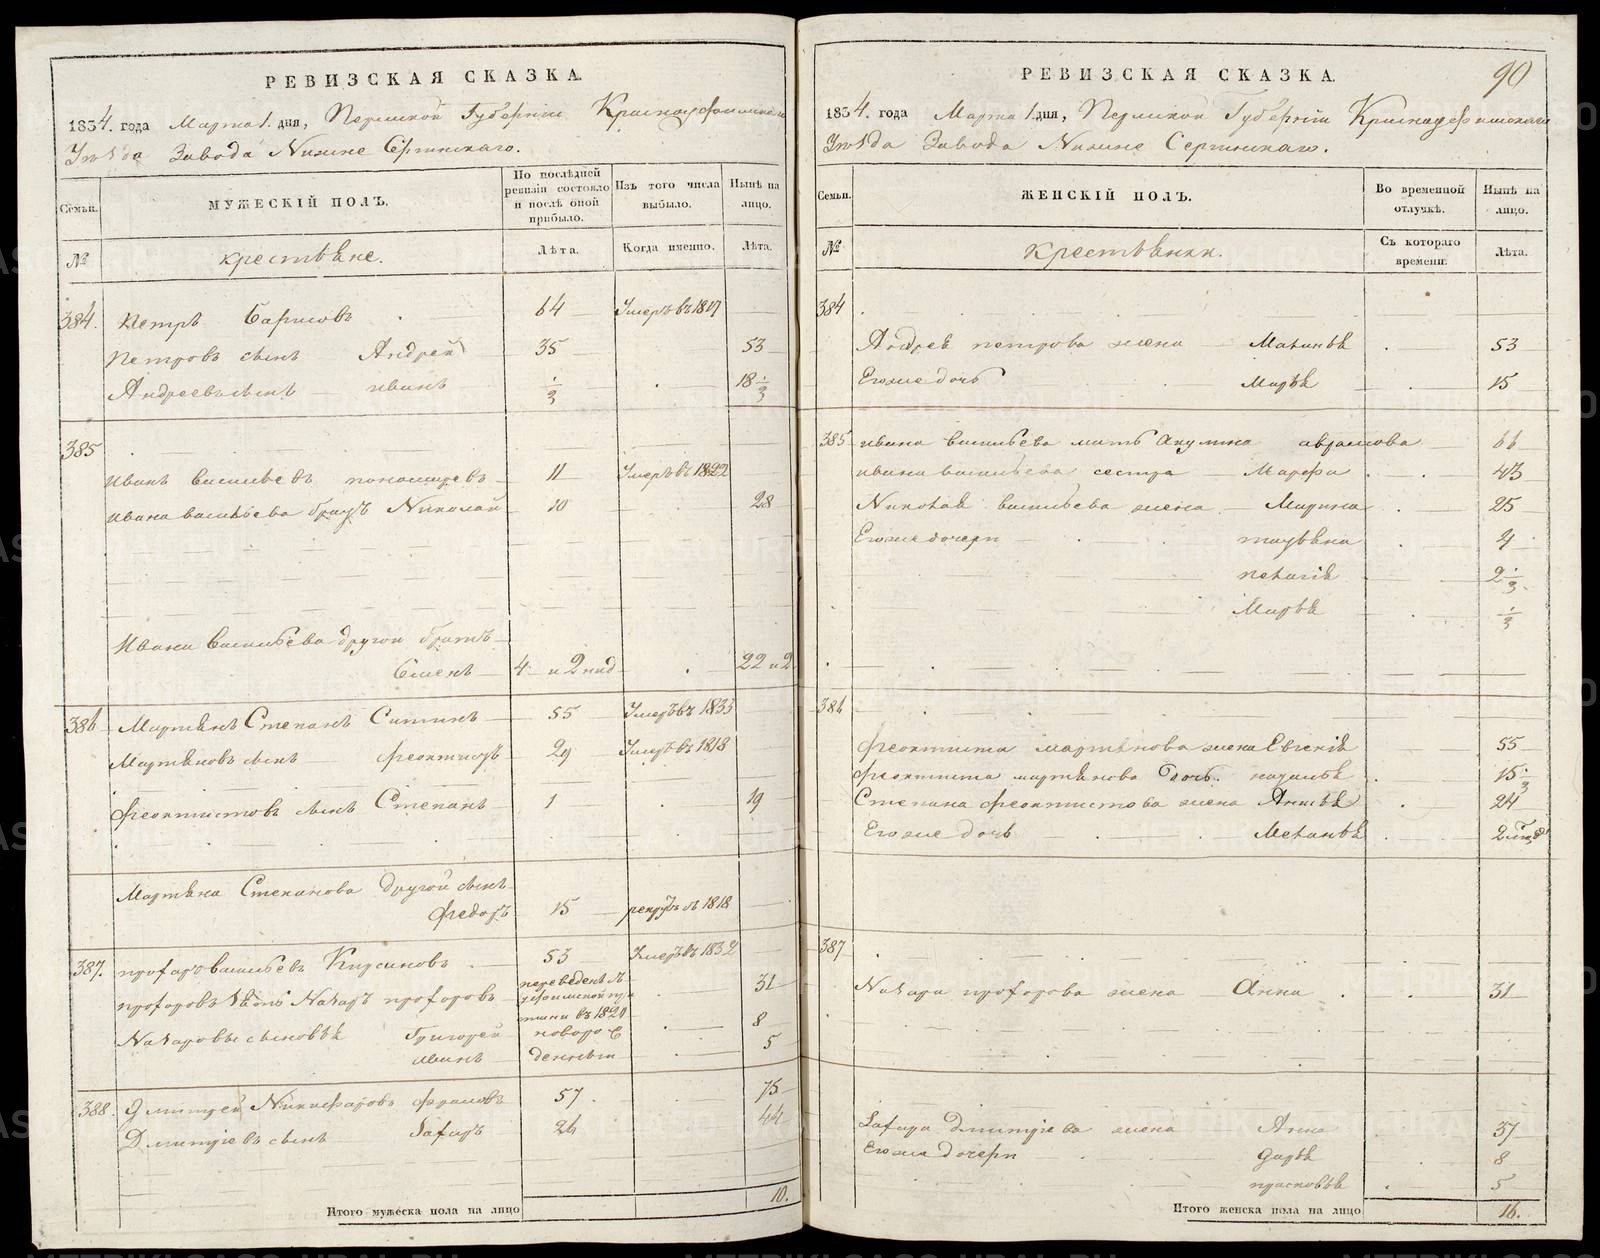 РЕВИЗСКАЯ СКАЗКА.
1834. года Марта 1. дня, Пермской Губернiи Красноуфимскаго
Уѣзда Завода Нижне Сергинскаго.
Семьи.
МУЖЕСКIЙ ПОЛЪ.
По послѣдней ревизiи состояло и послѣ оной прибыло.
Изъ того числа выбыло.
Нынѣ на лицо.
№
крестьяне.
Лѣта.
Когда именно.
Лѣта.
384. Петръ Барисовъ 64 Умеръ въ 1817
Петровъ сынъ Андрей 35 53
Андреевъ сынъ иванъ 1/3 18 1/3
385
иванъ васильевъ 11 Умеръ въ 1822
ивана васильева братъ Николай 10 28
Ивана васильева другой братъ
Сименъ 4 и 2 нид 22 и 2
386 Мартьянъ Степанъ Ситинъ 55 Умеръ въ 1833
Мартьяновъ сынъ феоктистъ 29 Умеръ въ 1818
феоктистовъ сынъ Степанъ 1 19
Мартьяна Степанова другой сынъ
федоръ 15 рекрутъ съ 1818
387. васильевъ Кирсиновъ 53 Умеръ въ 1832
Назаръ 31
Назаровы сыновья Григорей 8
иванъ 5
388. Дмитрей Никифаровъ фроловъ 57 75
Дмитрiевъ сынъ Захаръ 26 44
Итого мужеска пола на лицо 10.
90
РЕВИЗСКАЯ СКАЗКА.
1834. года Марта 1. дня, Пермской Губернiи Красноуфимскаго
Уѣзда Завода Нижне Сергинскаго.
Семьи.
ЖЕНСКIЙ ПОЛЪ.
Во временной отлучкѣ.
Нынѣ на лицо.
№
крестьянки.
Съ котораго времени.
Лѣта.
384
Андрея петрова жена Маланья 53
Егоже дочь Марья 15
385 ивана васильева мать Акулина аврамова 66
ивана васильева сестра Марфа 43
Николая васильева жена Марина 25
Егоже дочери татьяна 4
пелагiя 2 1/3
Марья 1/3
386
феоктиста мартьянова жена Евгенiя 55
феоктиста мартьянова дочь наталья 15 1/3
Степана феоктистова жена Анисья 24
Егоже дочь Меланья
387
Назара жена Анна 31
Захара Дмитрiева жена Анна 37
Егоже дочери дарья 8
прасковья 5
Итого женска пола на лицо 16.